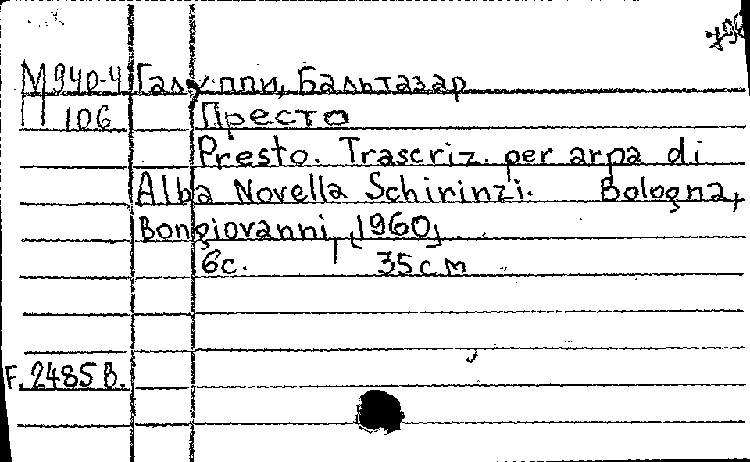 М940-4 Галуппи, Бальтазар
П 106 Престо
Presto. Trascriz. per arpa di
Alba Novella Schirinzi. Bologna,
Bongiovanni, [1960]
6с. 35см
F. 2485 B.